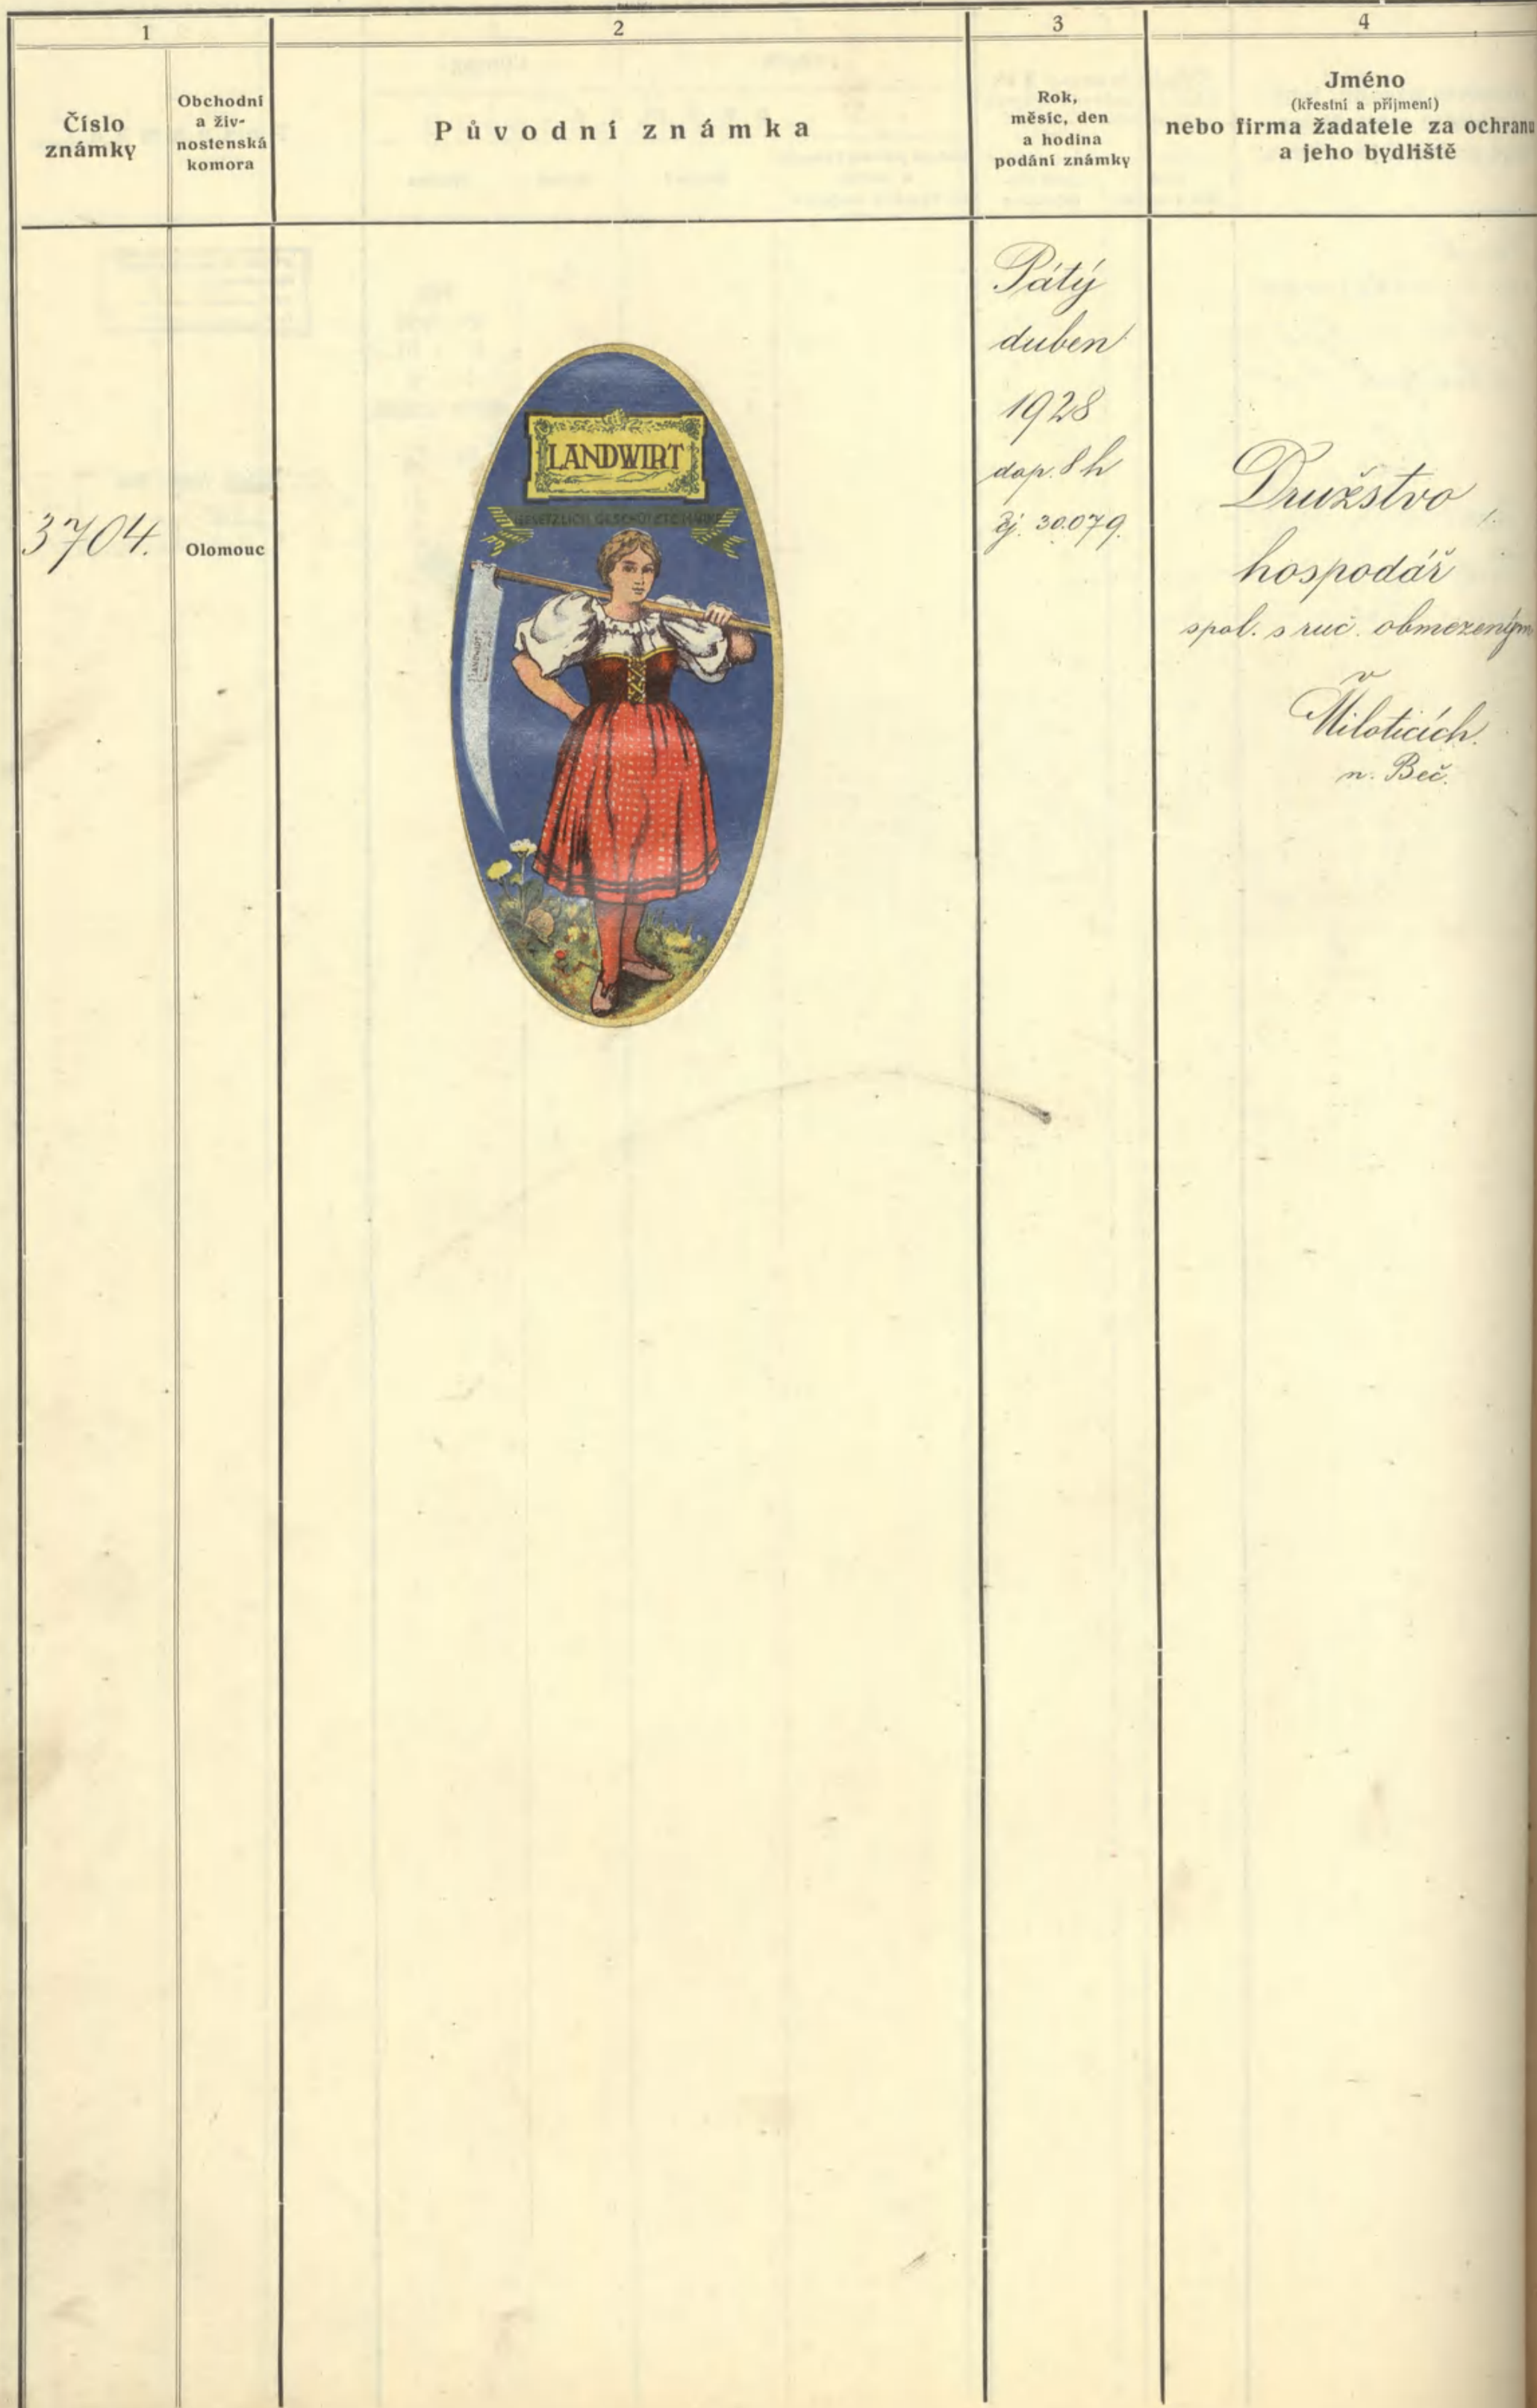 1
2
3
4
Číslo
známky
Obchodní
a živ-
nostenská
komora
Původní známka
Rok,
měsíc, den
a hodina
podání známky
Jméno
(křestní a příjmení)
nebo firma žadatele za ochranu
a jeho bydliště
3704.
Olomouc
LANDWIRT
GESETZLICH GESCHÜTZTE MARKE
LANDWIRT
Pátý
duben
1928
dop. 8 h
čj. 30.079.
Družstvo
hospodář
spol. s ruč. obmezeným
v
Miloticích
n. Beč.